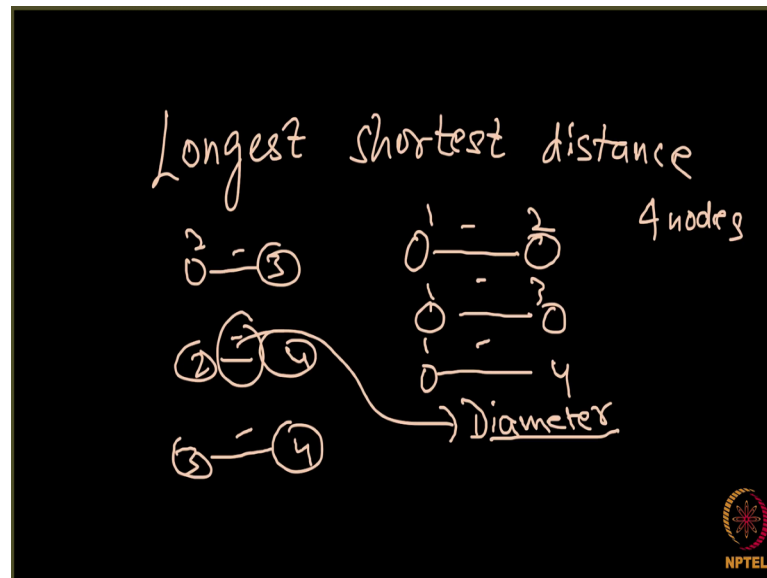 Longest shortest distance
4 nodes
1 - 2
1 - 3
1 - 4
2 - 3
2 - 4
3 - 4
Diameter
NPTEL